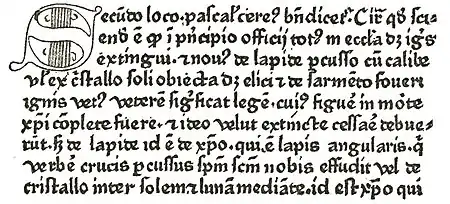 Secūdo loco. pascal' cere⁹ bn̄dicet᷑. Cir̄ qd̛ sci-
end̄ ē ꝙ ī pͥncipio officij tot⁹ in eccl̄a dꝫ igͥs
extingui. ⁊ nou⁹ de lapide ꝑcusso cū calibe
vl' ex cͥstallo soli obiecta dꝫ elici ⁊ de sarmēto foueri
ignis vet⁹ veterē sigͥficat legē. cui⁹ figuē in mōte
xp̄i cōplete fuere. ⁊ ideo velut extincte cessaē debue-
rūt. sꝫ de lapide id ē de xp̄o. qui. ē lapis angularis. qͥ
verbē crucis ꝑcussus sp̄m scm̄ nobis effudit vel de
cristallo inter solem ⁊ lunā mediāte. id est xp̄o qui